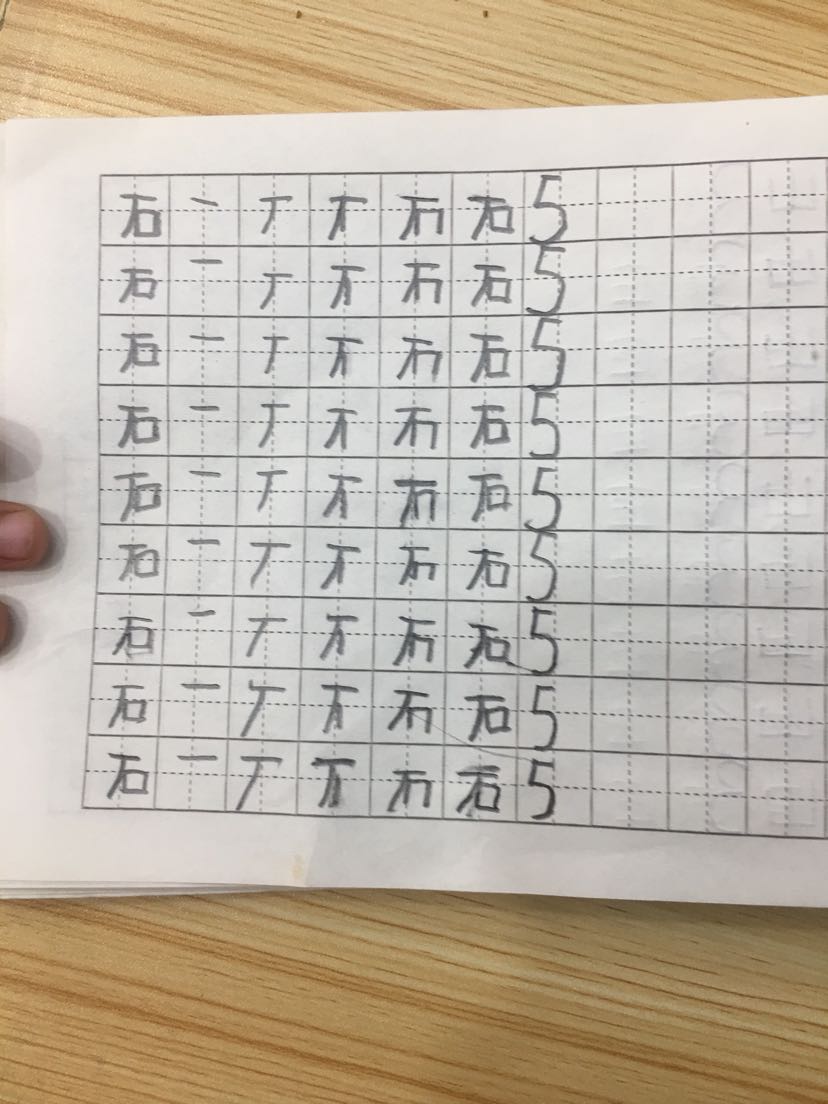 石 一 丆 不 石 石 5
石 一 丆 不 石 石 5
石 一 丆 不 石 石 5
石 一 丆 不 石 石 5
石 一 丆 不 石 石 5
石 一 丆 不 石 石 5
石 一 丆 不 石 石 5
石 一 丆 不 石 石 5
石 一 丆 不 石 石 5